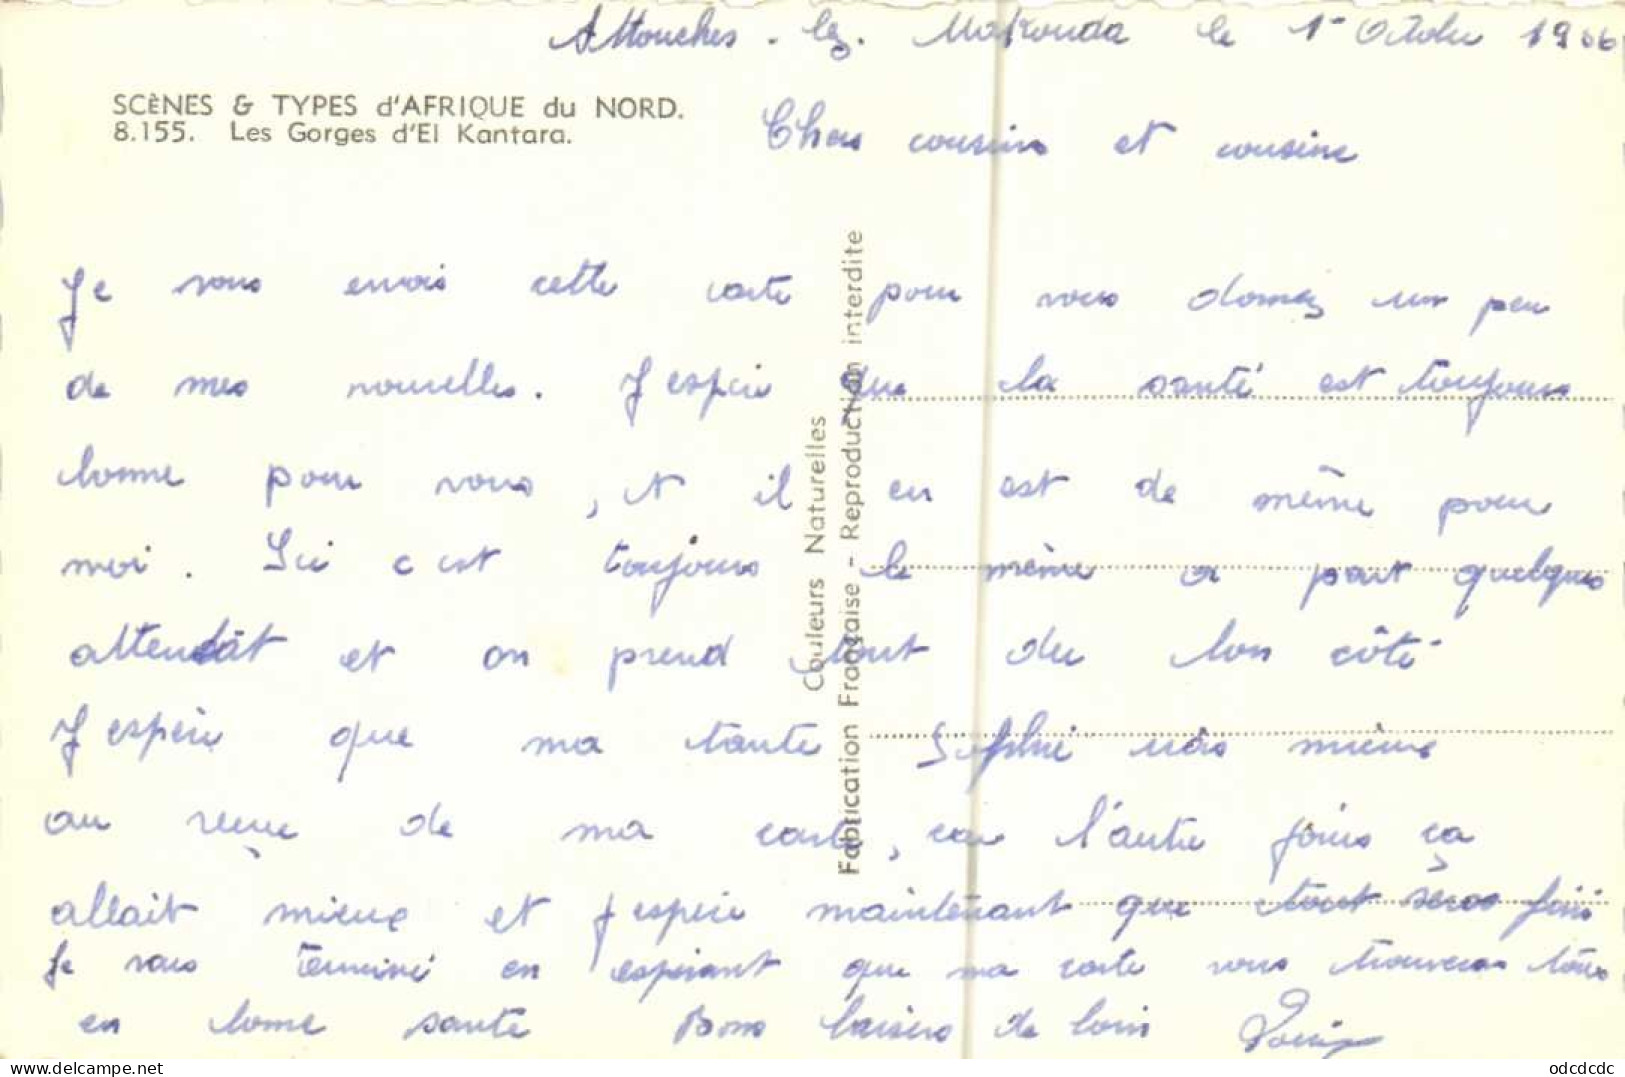 le 1er Octobre 19
SCÈNES & TYPES d'AFRIQUE du NORD.
8.155. Les Gorges d'El Kantara.
Chers cousins et cousine
Je vous envois cette carte pour vous donnez un peu
de mes nouvelles. J'espère que la santé est toujours
bonne pour vous, et il en est de même pour
moi. Ici c'est toujours le même a part quelques
attentât et on prend tout du bon côté
J'espère que ma tante Sophie vas mieux
au reçue de ma carte, car l'autre fois ça
allait mieux et j'espère maintenant que tout seras fini
Je vais terminé en espérant que ma carte vous trouveras tous
en bonne santé Bons baisers de loin
Couleurs Naturelles
Fabrication Française - Reproduction interdite
delcampe.net
odcdcdc